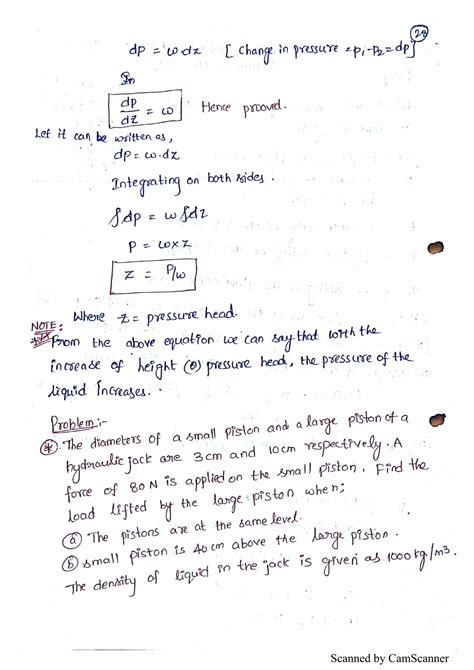 28
dp = ωdz [ Change in pressure = p₁-p₂=dp]
dp/dz = ω Hence prooved.
Let it can be written as,
dp = ω.dz
Integrating on both sides.
∫dp = ω∫dz
P = ω×z
z = P/ω
Where z = pressure head.
NOTE:
From the above equation we can say that with the
increase of height (or) pressure head, the pressure of the
liquid Increases.
Problem:-
The diameters of a small piston and a large piston of a
hydraulic jack are 3cm and 10cm respectively. A
force of 80N is applied on the small piston. Find the
Load lifted by the large piston when;
(a) The pistons are at the same level.
(b) small piston is 40cm above the large piston.
The density of liquid in the jack is given as 1000kg/m³.
Scanned by CamScanner